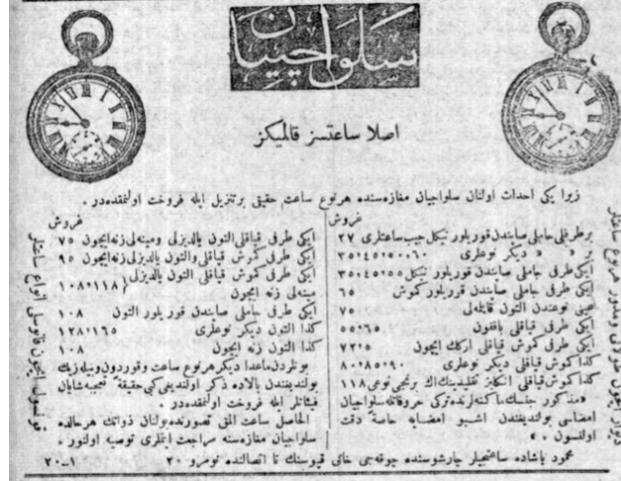 سلواجیان
اصلا ساعتسز قالمیكز
زیرا یكی احداث اولنان سلواجیان مغازه‌سنده هرنوع ساعت حقیقی برتنزیل ایله فروخت اولنمقده‌در.
فروش
برطرفلی جاملی صابندن قوریلور نیكل جیب ساعتلری ٢٧
بر » » دیگر نوعلری ٦٠،٥٠،٤٥،٣٥
ایكی طرفی جاملی صابندن قوریلور نیكل ٥٥،٤٥،٣٥
ایكی طرفی جاملی صابندن قوریلور كموش ٦٥
عینی نوعندن التون قابلمه‌لی ٧٥
ایكی طرفی قپاقلی بافون ٦٥،٥٥
ایكی طرفی كموش قپاقلی اركك ایچون ٧٢٥
كذا كموش قپاقلی دیگر نوعلری ٩٠،٨٥،٨٠
كذا كموش قپاقلی انكلیز تقلیدینك اك برنجی نوعی ١١٨
«مذكور جنسك ماكنه‌لرنده تركی حروفاتله سلواجیان
امضاسی بولندیغندن اشبو امضایه خاصةً دقت
اولنسون.»
فروش
ایكی طرفی قپاقلی التون یالدیزلی ومینه‌لی زنه ایچون ٧٥
ایكی طرفی كموش قپاقلی والتون یالدیزلی زنه ایچون ٩٥
ایكی طرفی كموش قپاقلی التون یالدیزلی
مینه‌لی زنه ایچون ١١٨،١٠٨
ایكی طرفی جاملی صابندن قوریلور التون ١٠٨
كذا التون دیگر نوعلری ١٦٥،١٢٨
كذا التون زنه ایچون ١٠٨
بونلردن ماعدا دیگر هرنوع ساعت وقوردون وبیله‌زیك
بولندیغندن بالاده ذكر اولندیغی كبی حقیقةً تعجبه شایان
فیئاتلر ایله فروخت اولنمقده‌در.
الحاصل ساعت المق تصورنده بولنان ذواتك هرحالده
سلواجیان مغازه‌سنه مراجعت ایتملری توصیه اولنور.
محمود پاشاده ساعتجیلر چارشوسنده چوقه‌جی خانی قپوسنك تا اتصالنده نومرو ٢٠
١-٢٠